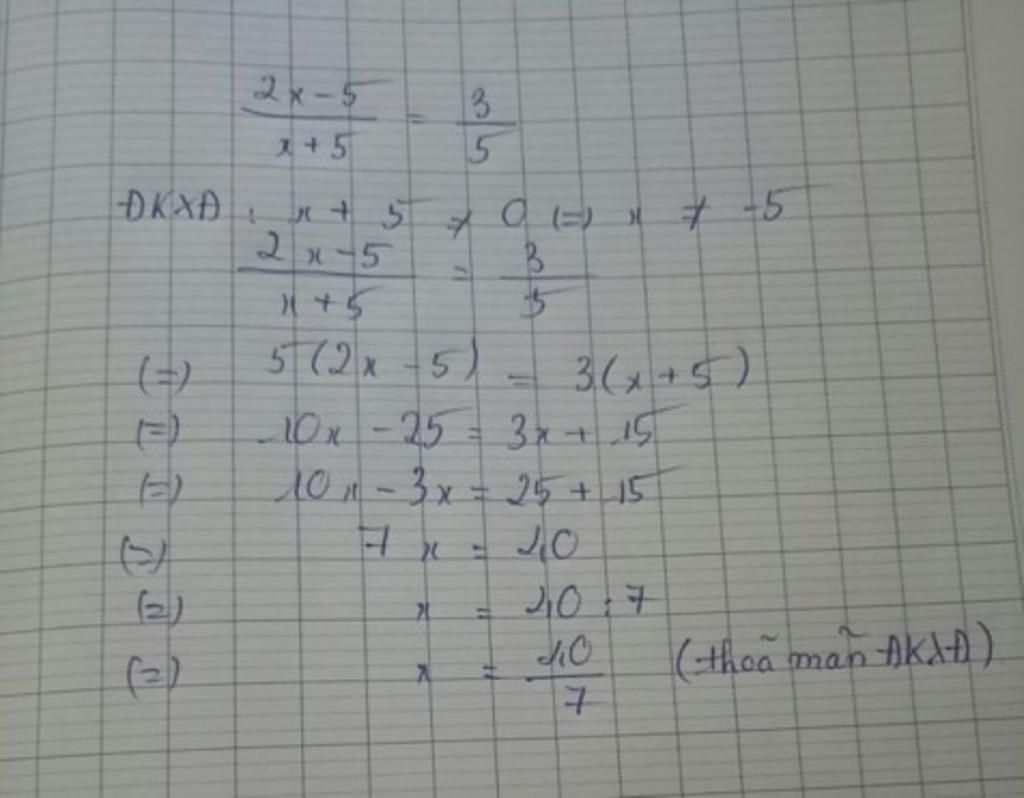 2x-5 / x+5 = 3 / 5
ĐKXĐ : x + 5 ≠ 0 (=) x ≠ -5
2x-5 / x+5 = 3 / 5
(=) 5(2x - 5) = 3(x+5)
(=) 10x - 25 = 3x + 15
(=) 10x - 3x = 25 + 15
(=) 7x = 40
(=) x = 40 : 7
(=) x = 40 / 7 (thoã mãn ĐKXĐ)